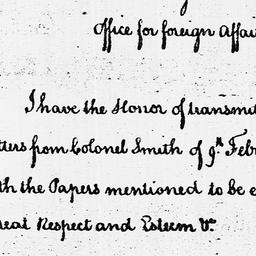 Office for foreign Affai
I have the Honor of transmit
tters from Colonel Smith of 9th Feb
th the Papers mentioned to be e
reat Respect and Esteem &c.